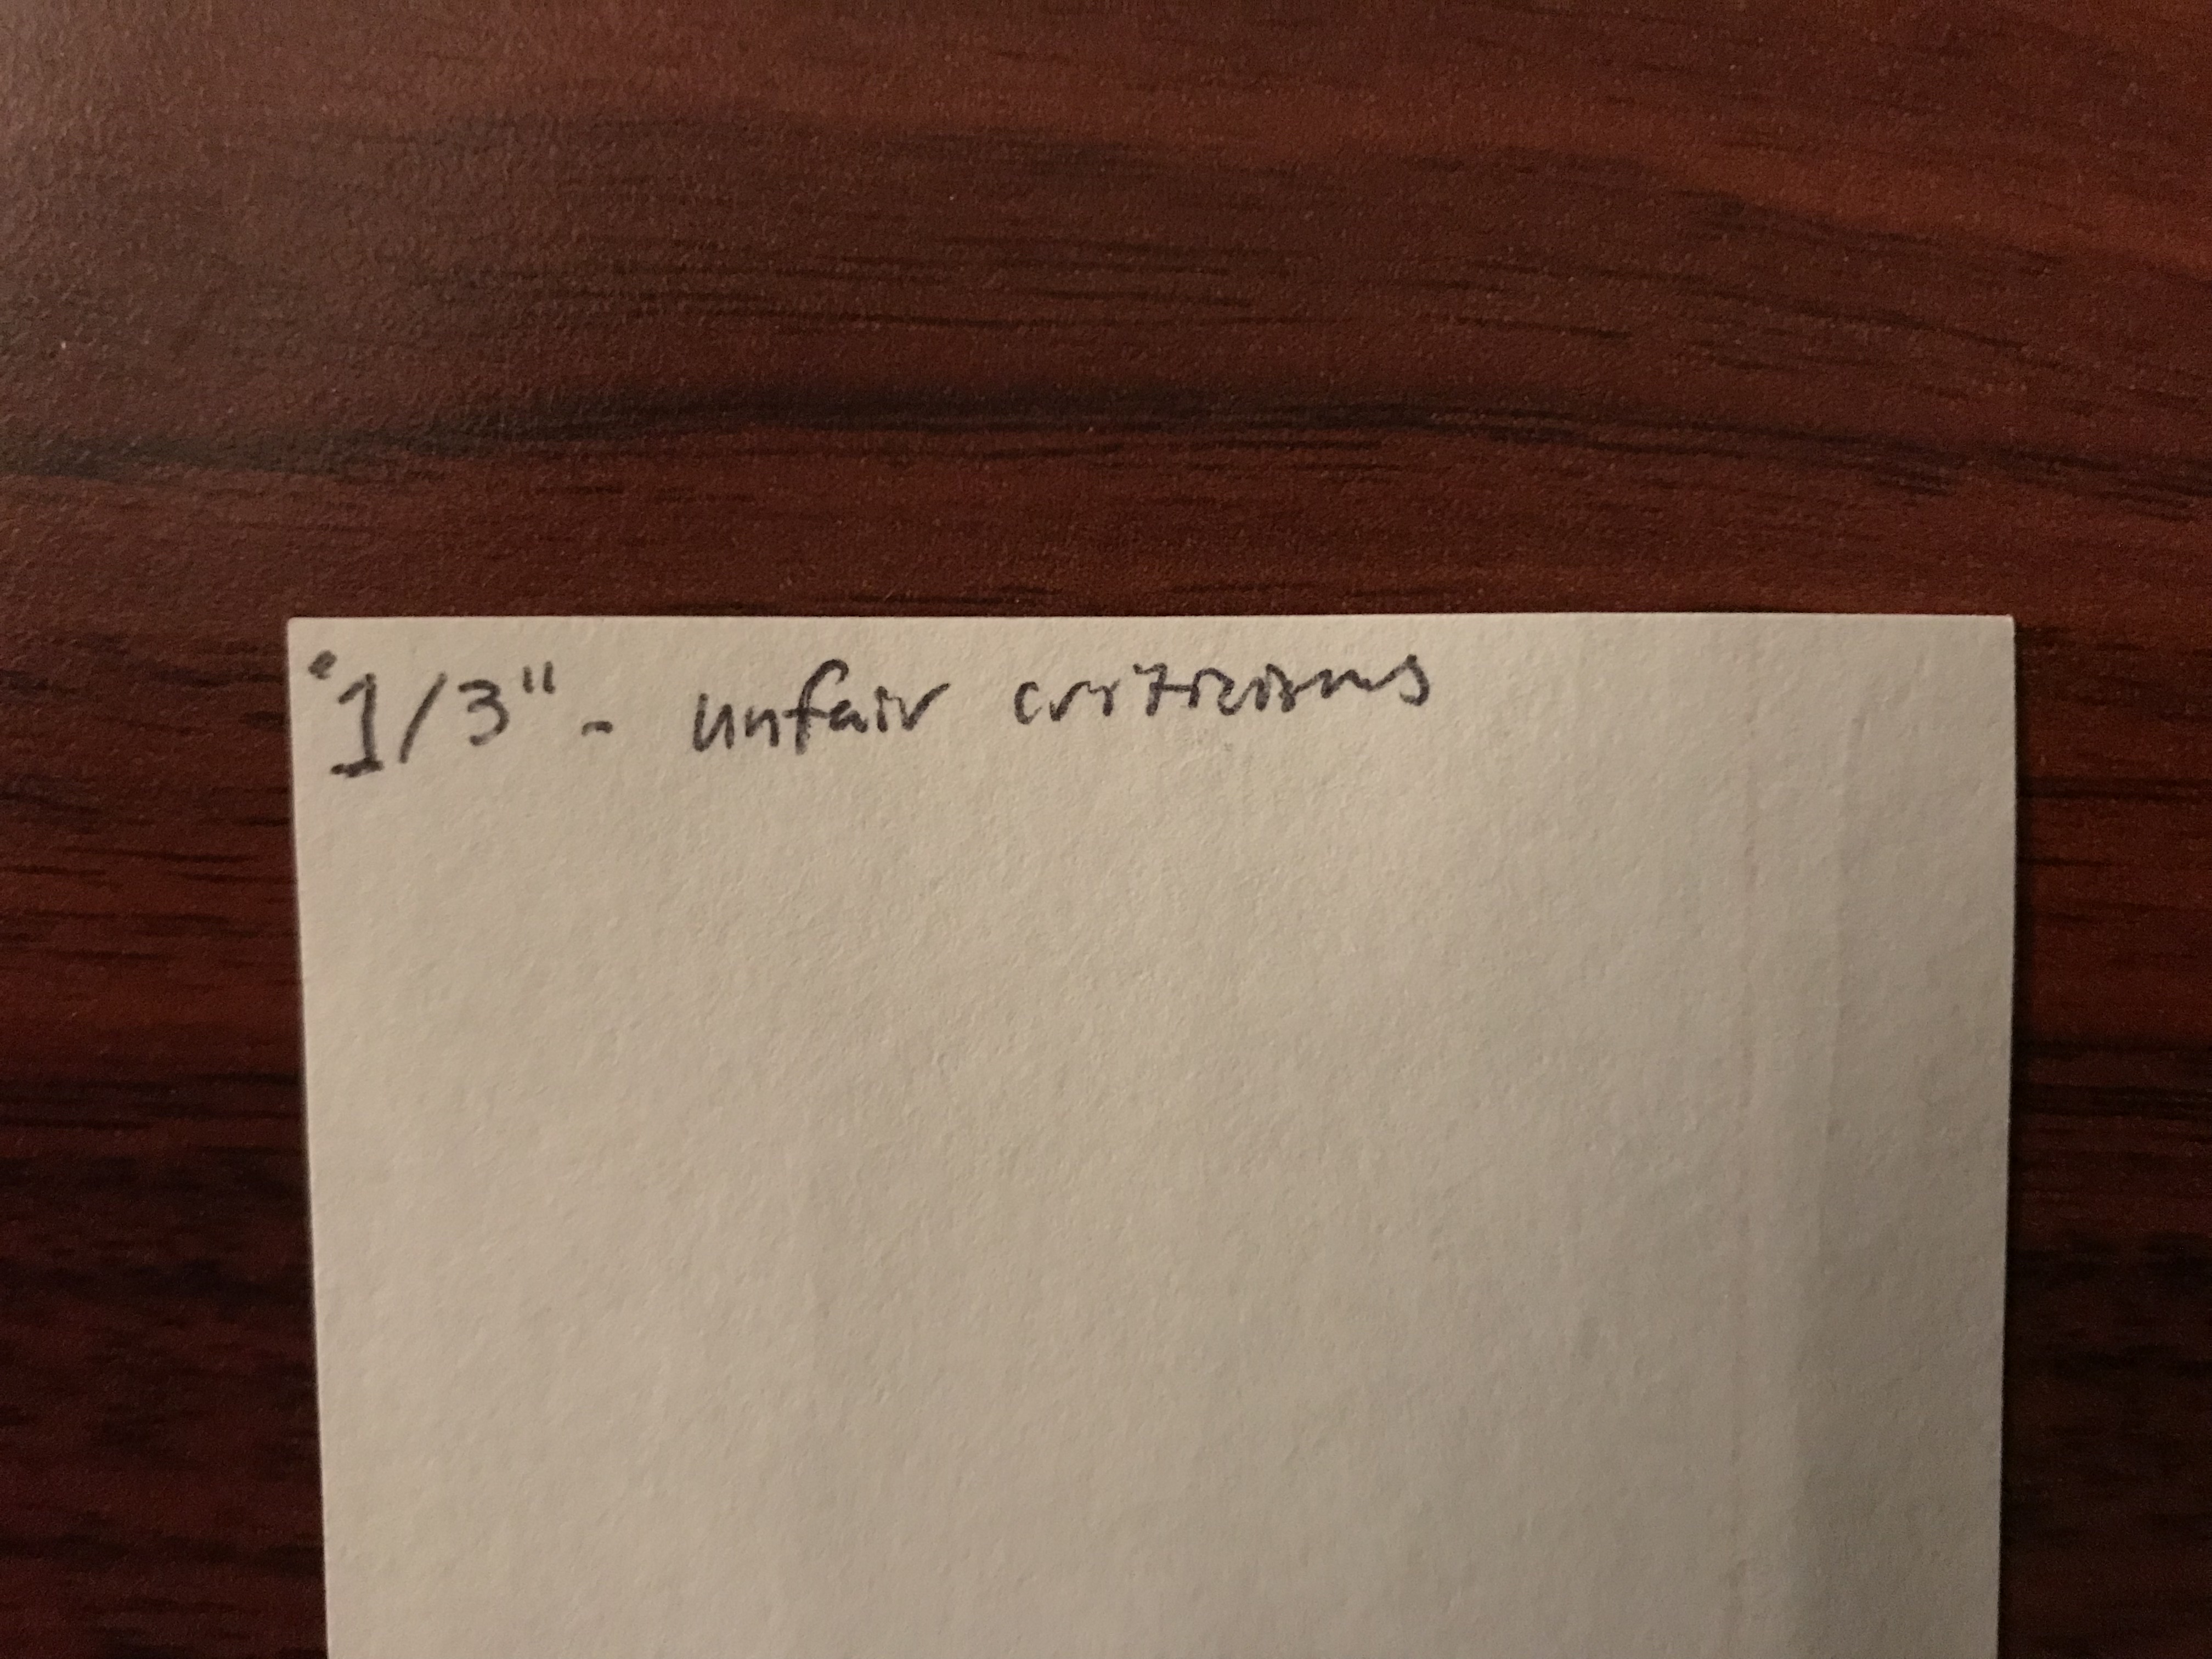 "1/3" - unfair criticisms